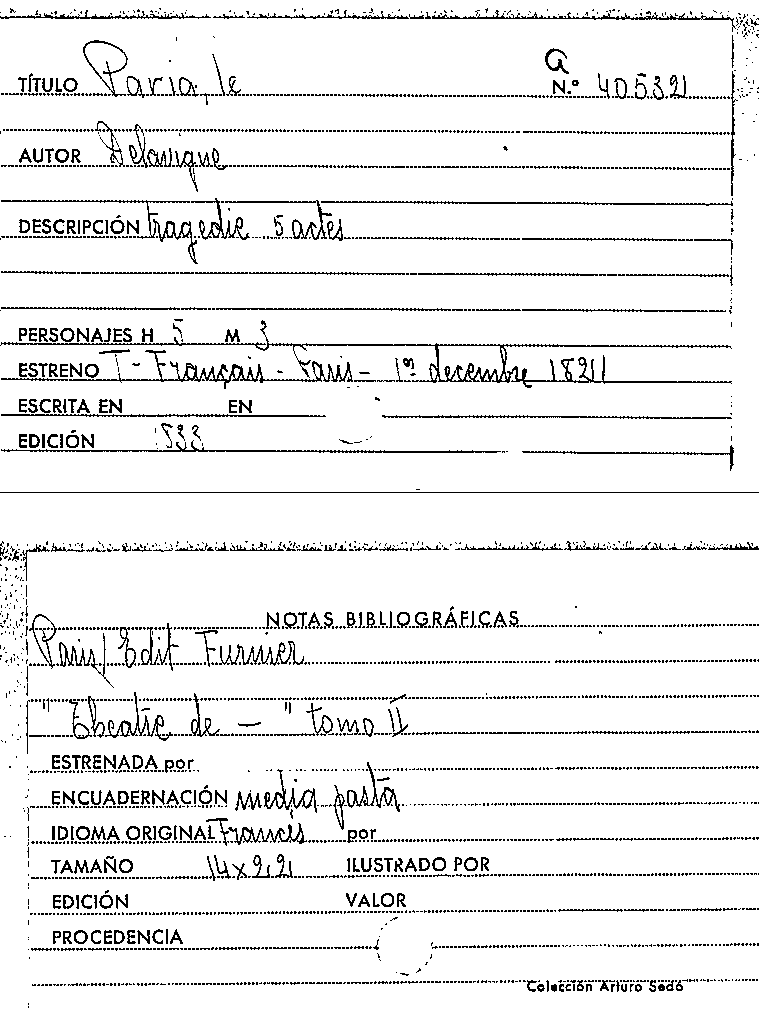 TÍTULO Paria, le
a
N.º 405321
AUTOR Delavigne
DESCRIPCIÓN tragedie 5 actes
PERSONAJES H 5 M 3
ESTRENO T - Français - Paris - 1º decembre 1821
ESCRITA EN EN
EDICIÓN 1833
NOTAS BIBLIOGRÁFICAS
Paris/ Edit Furnier
"Theatre de — " tomo II
ESTRENADA por
ENCUADERNACIÓN media pasta
IDIOMA ORIGINAL Frances por
TAMAÑO 14x9,21 ILUSTRADO POR
EDICIÓN VALOR
PROCEDENCIA
Colección Arturo Sedó